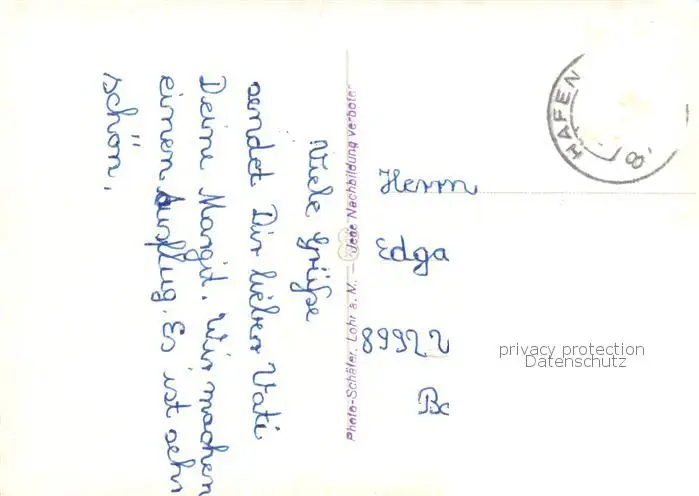 Viele Grüße
sendet Dir lieber Vati
Deine Margit. Wir machen
einen Ausflug. Es ist sehr
schön.
Photo-Schäfer, Lohr a. M. — Jede Nachbildung verboten
HAFEN
8.
Herrn
Edga
89922
Be
privacy protection
Datenschutz